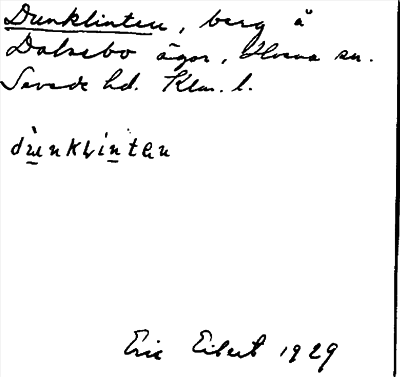 Dunklinten, berg å
Dalsebo ägor, sn.
Sevede hd. Klm. l.
dunklinten
Eric Eibert 1929